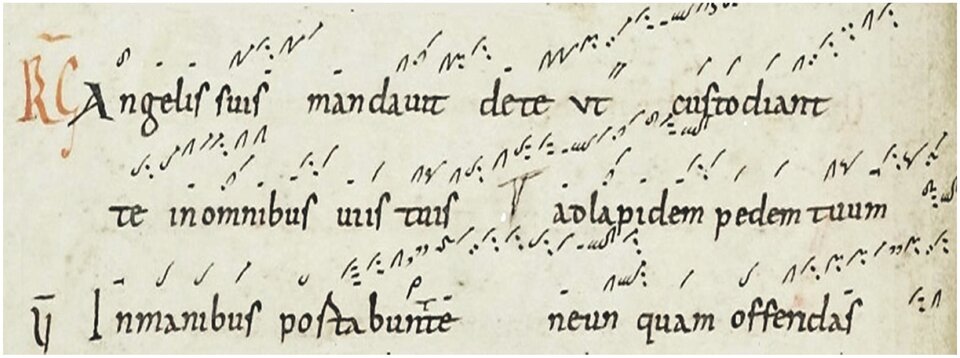 RG Angelis suis mandauit dete vt custodiant
te inomnibus uiis tuis T adlapidem pedem tuum
V Inmanibus postabunt te neun quam offendas